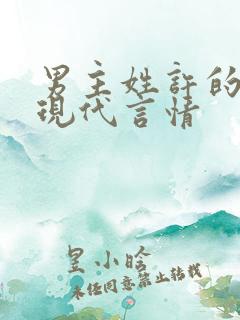 男主姓許的
現代言情
皇小晗
未经同意禁止转载